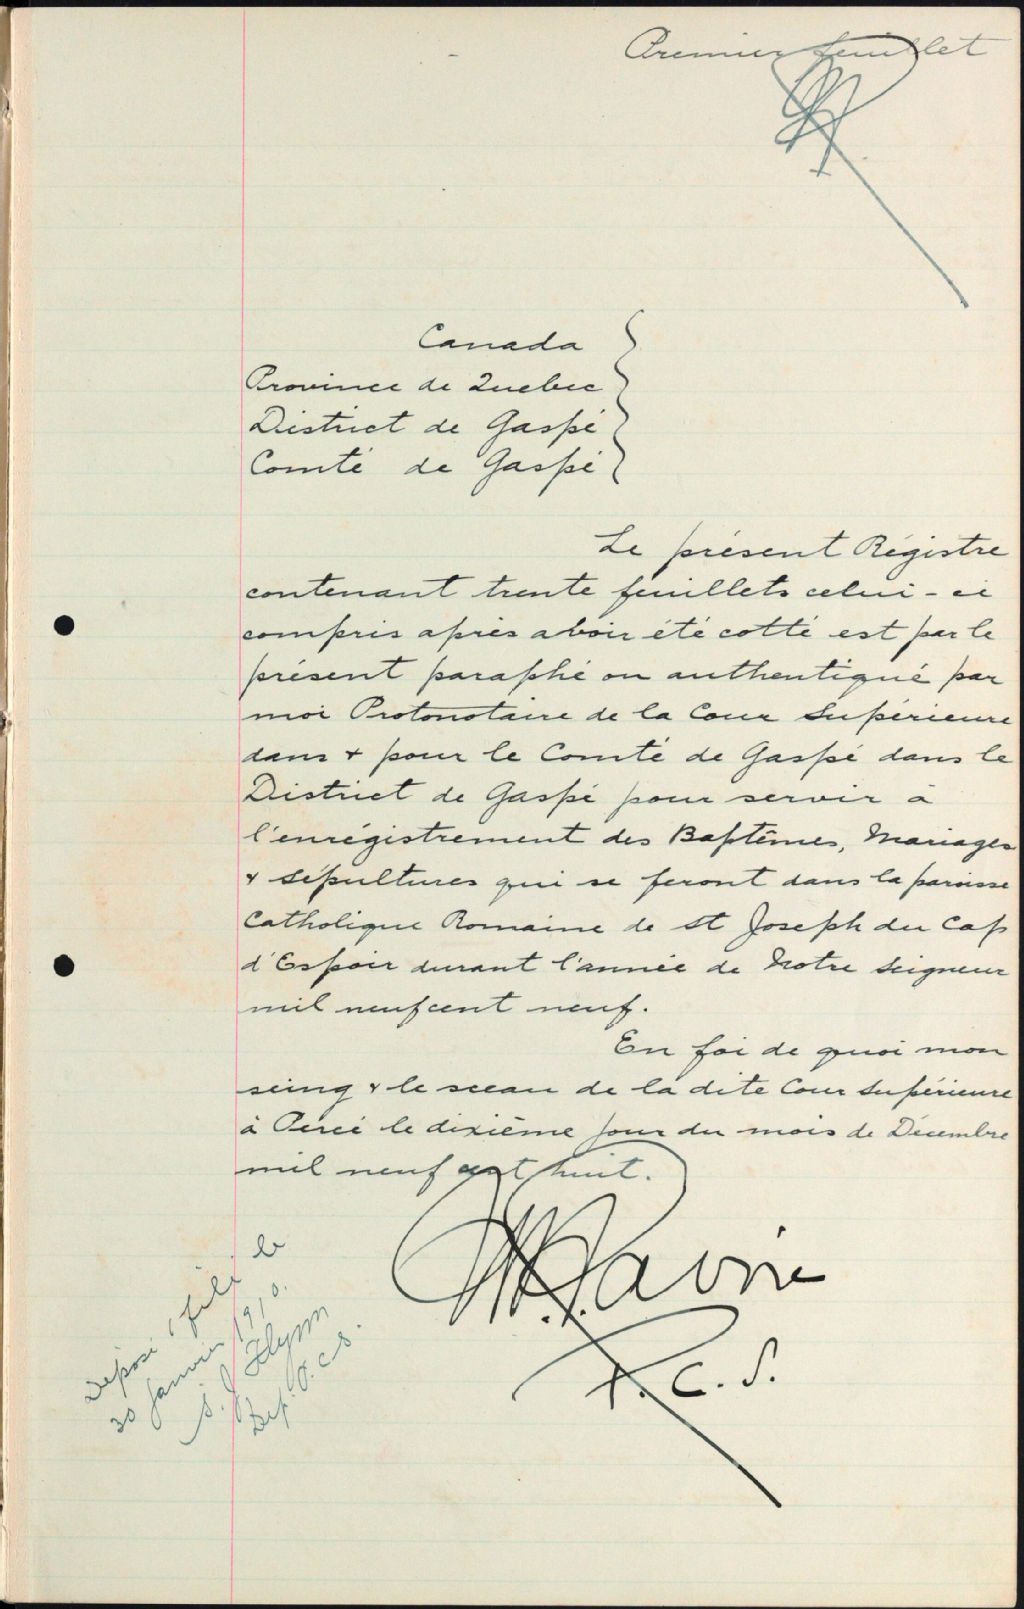 Premier feuillet
Canada
Province de Quebec
District de Gaspé
Comté de Gaspé
Le présent Régistre
contenant trente feuillets celui-ci
compris après avoir été cotté est par le
présent paraphé ou authentiqué par
moi Protonotaire de la Cour Supérieure
dans & pour le Comté de Gaspé dans le
District de Gaspé pour servir à
l'enrégistrement des Baptêmes, Mariages
& Sépultures qui se feront dans la paroisse
Catholique Romaine de St Joseph du Cap
d'Espoir durant l'année de Notre Seigneur
mil neuf cent neuf.
En foi de quoi mon
seing & le sceau de la dite Cour Supérieure
à Percé le dixième jour du mois de Décembre
mil neuf cent huit.
Lavoie
P. C. S.
Déposé, filé le
20 Janvier 1910.
Flynn
Dep. P.C.S.